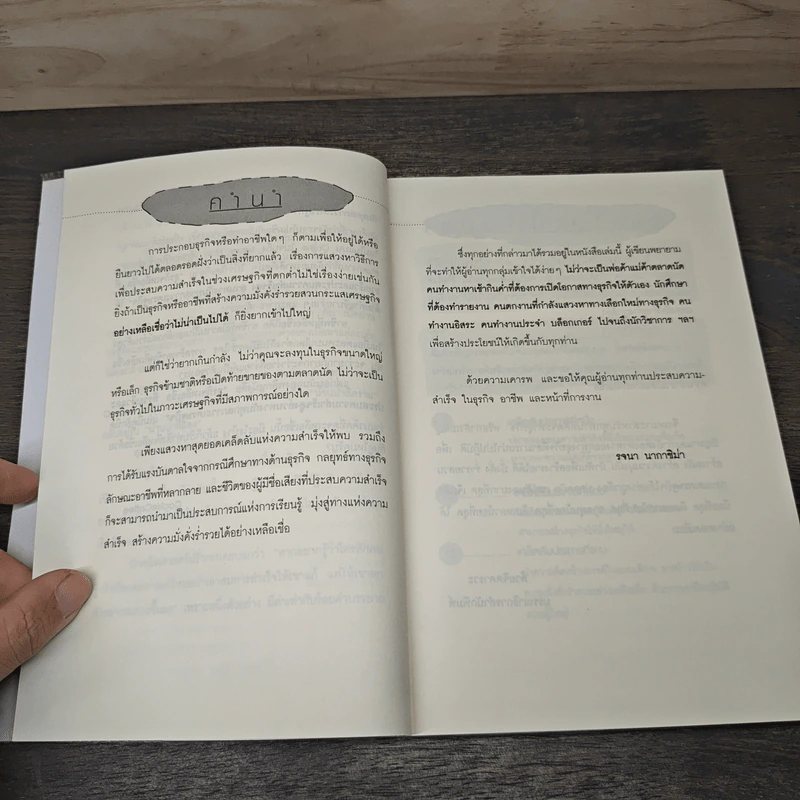 คำนำ
การประกอบธุรกิจหรือทำอาชีพใดๆ ก็ตามเพื่อให้อยู่ได้หรือ
ยืนยาวไปได้ตลอดรอดฝั่งว่าเป็นสิ่งที่ยากแล้ว เรื่องการแสวงหาวิธีการ
เพื่อประสบความสำเร็จในช่วงเศรษฐกิจที่ตกต่ำไม่ใช่เรื่องง่ายเช่นกัน
ยิ่งถ้าเป็นธุรกิจหรืออาชีพที่สร้างความมั่งคั่งร่ำรวยสวนกระแสเศรษฐกิจ
อย่างเหลือเชื่อว่าไม่น่าเป็นไปได้ ก็ยิ่งยากเข้าไปใหญ่
แต่ก็ใช่ว่ายากเกินกำลัง ไม่ว่าคุณจะลงทุนในธุรกิจขนาดใหญ่
หรือเล็ก ธุรกิจข้ามชาติหรือเปิดท้ายขายของตามตลาดนัด ไม่ว่าจะเป็น
ธุรกิจทั่วไปในภาวะเศรษฐกิจที่มีสภาพการณ์อย่างใด
เพียงแสวงหาสุดยอดเคล็ดลับแห่งความสำเร็จให้พบ รวมถึง
การได้รับแรงบันดาลใจจากกรณีศึกษาทางด้านธุรกิจ กลยุทธ์ทางธุรกิจ
ลักษณะอาชีพที่หลากหลาย และชีวิตของผู้มีชื่อเสียงที่ประสบความสำเร็จ
ก็จะสามารถนำมาเป็นประสบการณ์แห่งการเรียนรู้ มุ่งสู่ทางแห่งความ
สำเร็จ สร้างความมั่งคั่งร่ำรวยได้อย่างเหลือเชื่อ
ซึ่งทุกอย่างที่กล่าวมาได้รวมอยู่ในหนังสือเล่มนี้ ผู้เขียนพยายาม
ที่จะทำให้ผู้อ่านทุกกลุ่มเข้าใจได้ง่ายๆ ไม่ว่าจะเป็นพ่อค้าแม่ค้าตลาดนัด
คนทำงานหาเช้ากินค่ำที่ต้องการเปิดโอกาสทางธุรกิจให้ตัวเอง นักศึกษา
ที่ต้องทำรายงาน คนตกงานที่กำลังแสวงหาทางเลือกใหม่ทางธุรกิจ คน
ทำงานอิสระ คนทำงานประจำ บล็อกเกอร์ ไปจนถึงนักวิชาการ ฯลฯ
เพื่อสร้างประโยชน์ให้เกิดขึ้นกับทุกท่าน
ด้วยความเคารพ และขอให้คุณผู้อ่านทุกท่านประสบความ-
สำเร็จ ในธุรกิจ อาชีพ และหน้าที่การงาน
รจนา นากาชิม่า